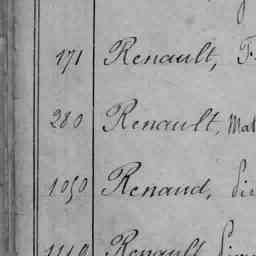 171 Renault, F
280 Renault, Mat
1050 Renaud,
1110 Renault